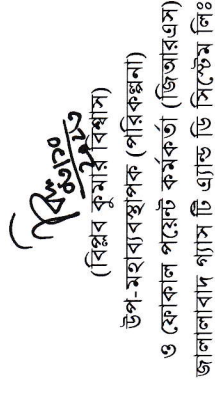 (বিপ্লব কুমার বিশ্বাস)
উপ-মহাব্যবস্থাপক (পরিকল্পনা)
ও ফোকাল পয়েন্ট কর্মকর্তা (জিআরএস)
জালালাবাদ গ্যাস টি এ্যান্ড ডি সিস্টেম লিঃ